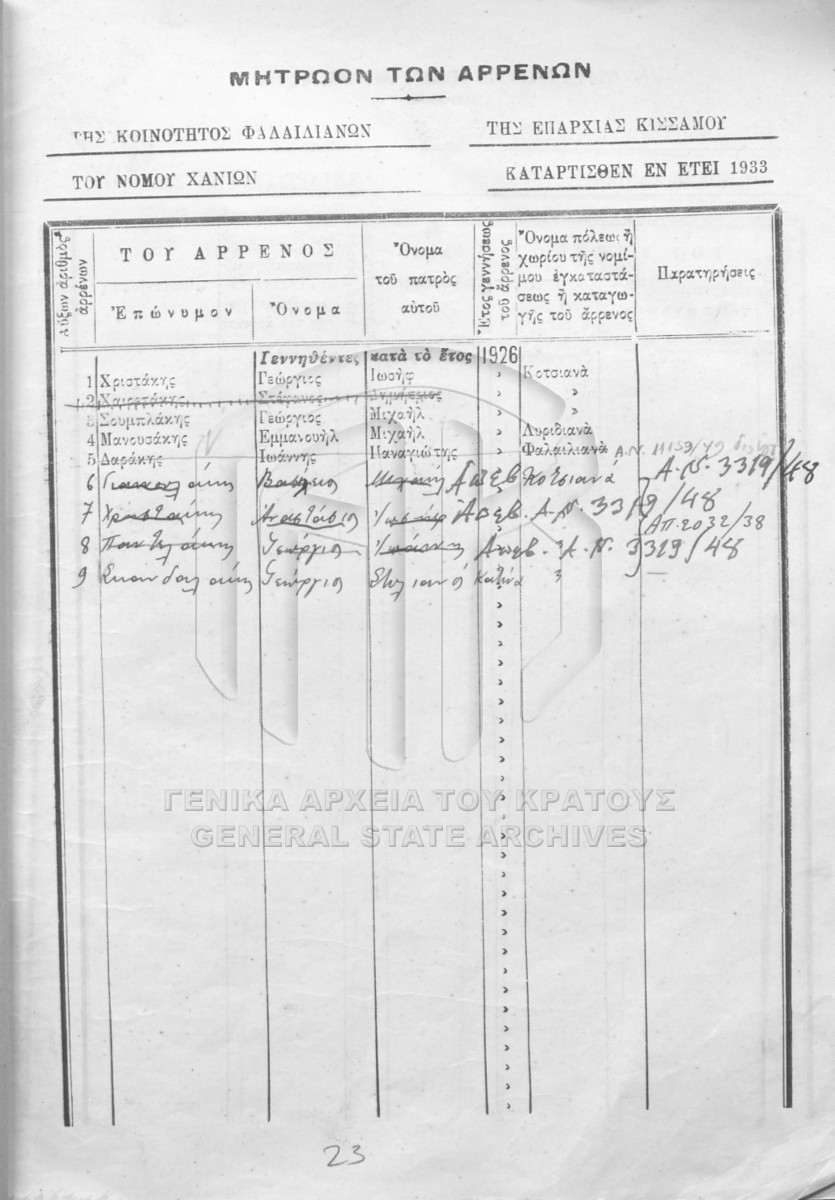 ΜΗΤΡΩΟΝ ΤΩΝ ΑΡΡΕΝΩΝ
ΤΗΣ ΚΟΙΝΟΤΗΤΟΣ ΦΑΛΑΙΛΙΑΝΩΝ ΤΗΣ ΕΠΑΡΧΙΑΣ ΚΙΣΣΑΜΟΥ
ΤΟΥ ΝΟΜΟΥ ΧΑΝΙΩΝ ΚΑΤΑΡΤΙΣΘΕΝ ΕΝ ΕΤΕΙ 1933
Αὔξων ἀριθμὸς ἀρρένων
ΤΟΥ ΑΡΡΕΝΟΣ
Ἐπώνυμον Ὄνομα
Ὄνομα τοῦ πατρὸς αὐτοῦ
Ἔτος γεννήσεως τοῦ ἄρρενος
Ὄνομα πόλεως ἢ χωρίου τῆς νομίμου ἐγκαταστάσεως ἢ καταγωγῆς τοῦ ἄρρενος
Παρατηρήσεις
Γεννηθέντες κατὰ τὸ ἔτος 1926
1 Χριστάκης Γεώργιος Ἰωσὴφ » Κοτσιανὰ
2 Χαιρετάκης Στέφανος Δημήτριος » »
3 Σουμπλάκης Γεώργιος Μιχαὴλ » »
4 Μανουσάκης Ἐμμανουὴλ Μιχαὴλ » Λυριδιανὰ
5 Δαράκης Ἰωάννης Παναγιώτης » Φαλαιλιανὰ Α.Ν. 11153/49
6 Βασίλειος Μιχαήλ Ἀπεβ Κοτσιανά Α.Ν. 3319/48
7 Χριστάκης Ἀναστάσιος Ἰωσήφ Ἀπεβ. Α.Ν. 3319/48
ΑΠ. 2032/38
8 Παντελάκης Γεώργιος Ἰωάννης Ἀπεβ. Α.Ν. 3319/48
9 Σκανδαλάκης Γεώργιος Στυλιανός
ΓΕΝΙΚΑ ΑΡΧΕΙΑ ΤΟΥ ΚΡΑΤΟΥΣ
GENERAL STATE ARCHIVES
23